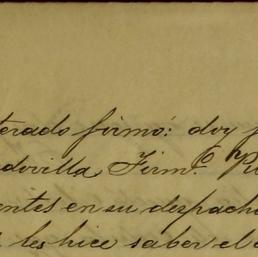 terado firmó: doy f
dovilla, Firm.º
entes en su despacho
les hice saber el